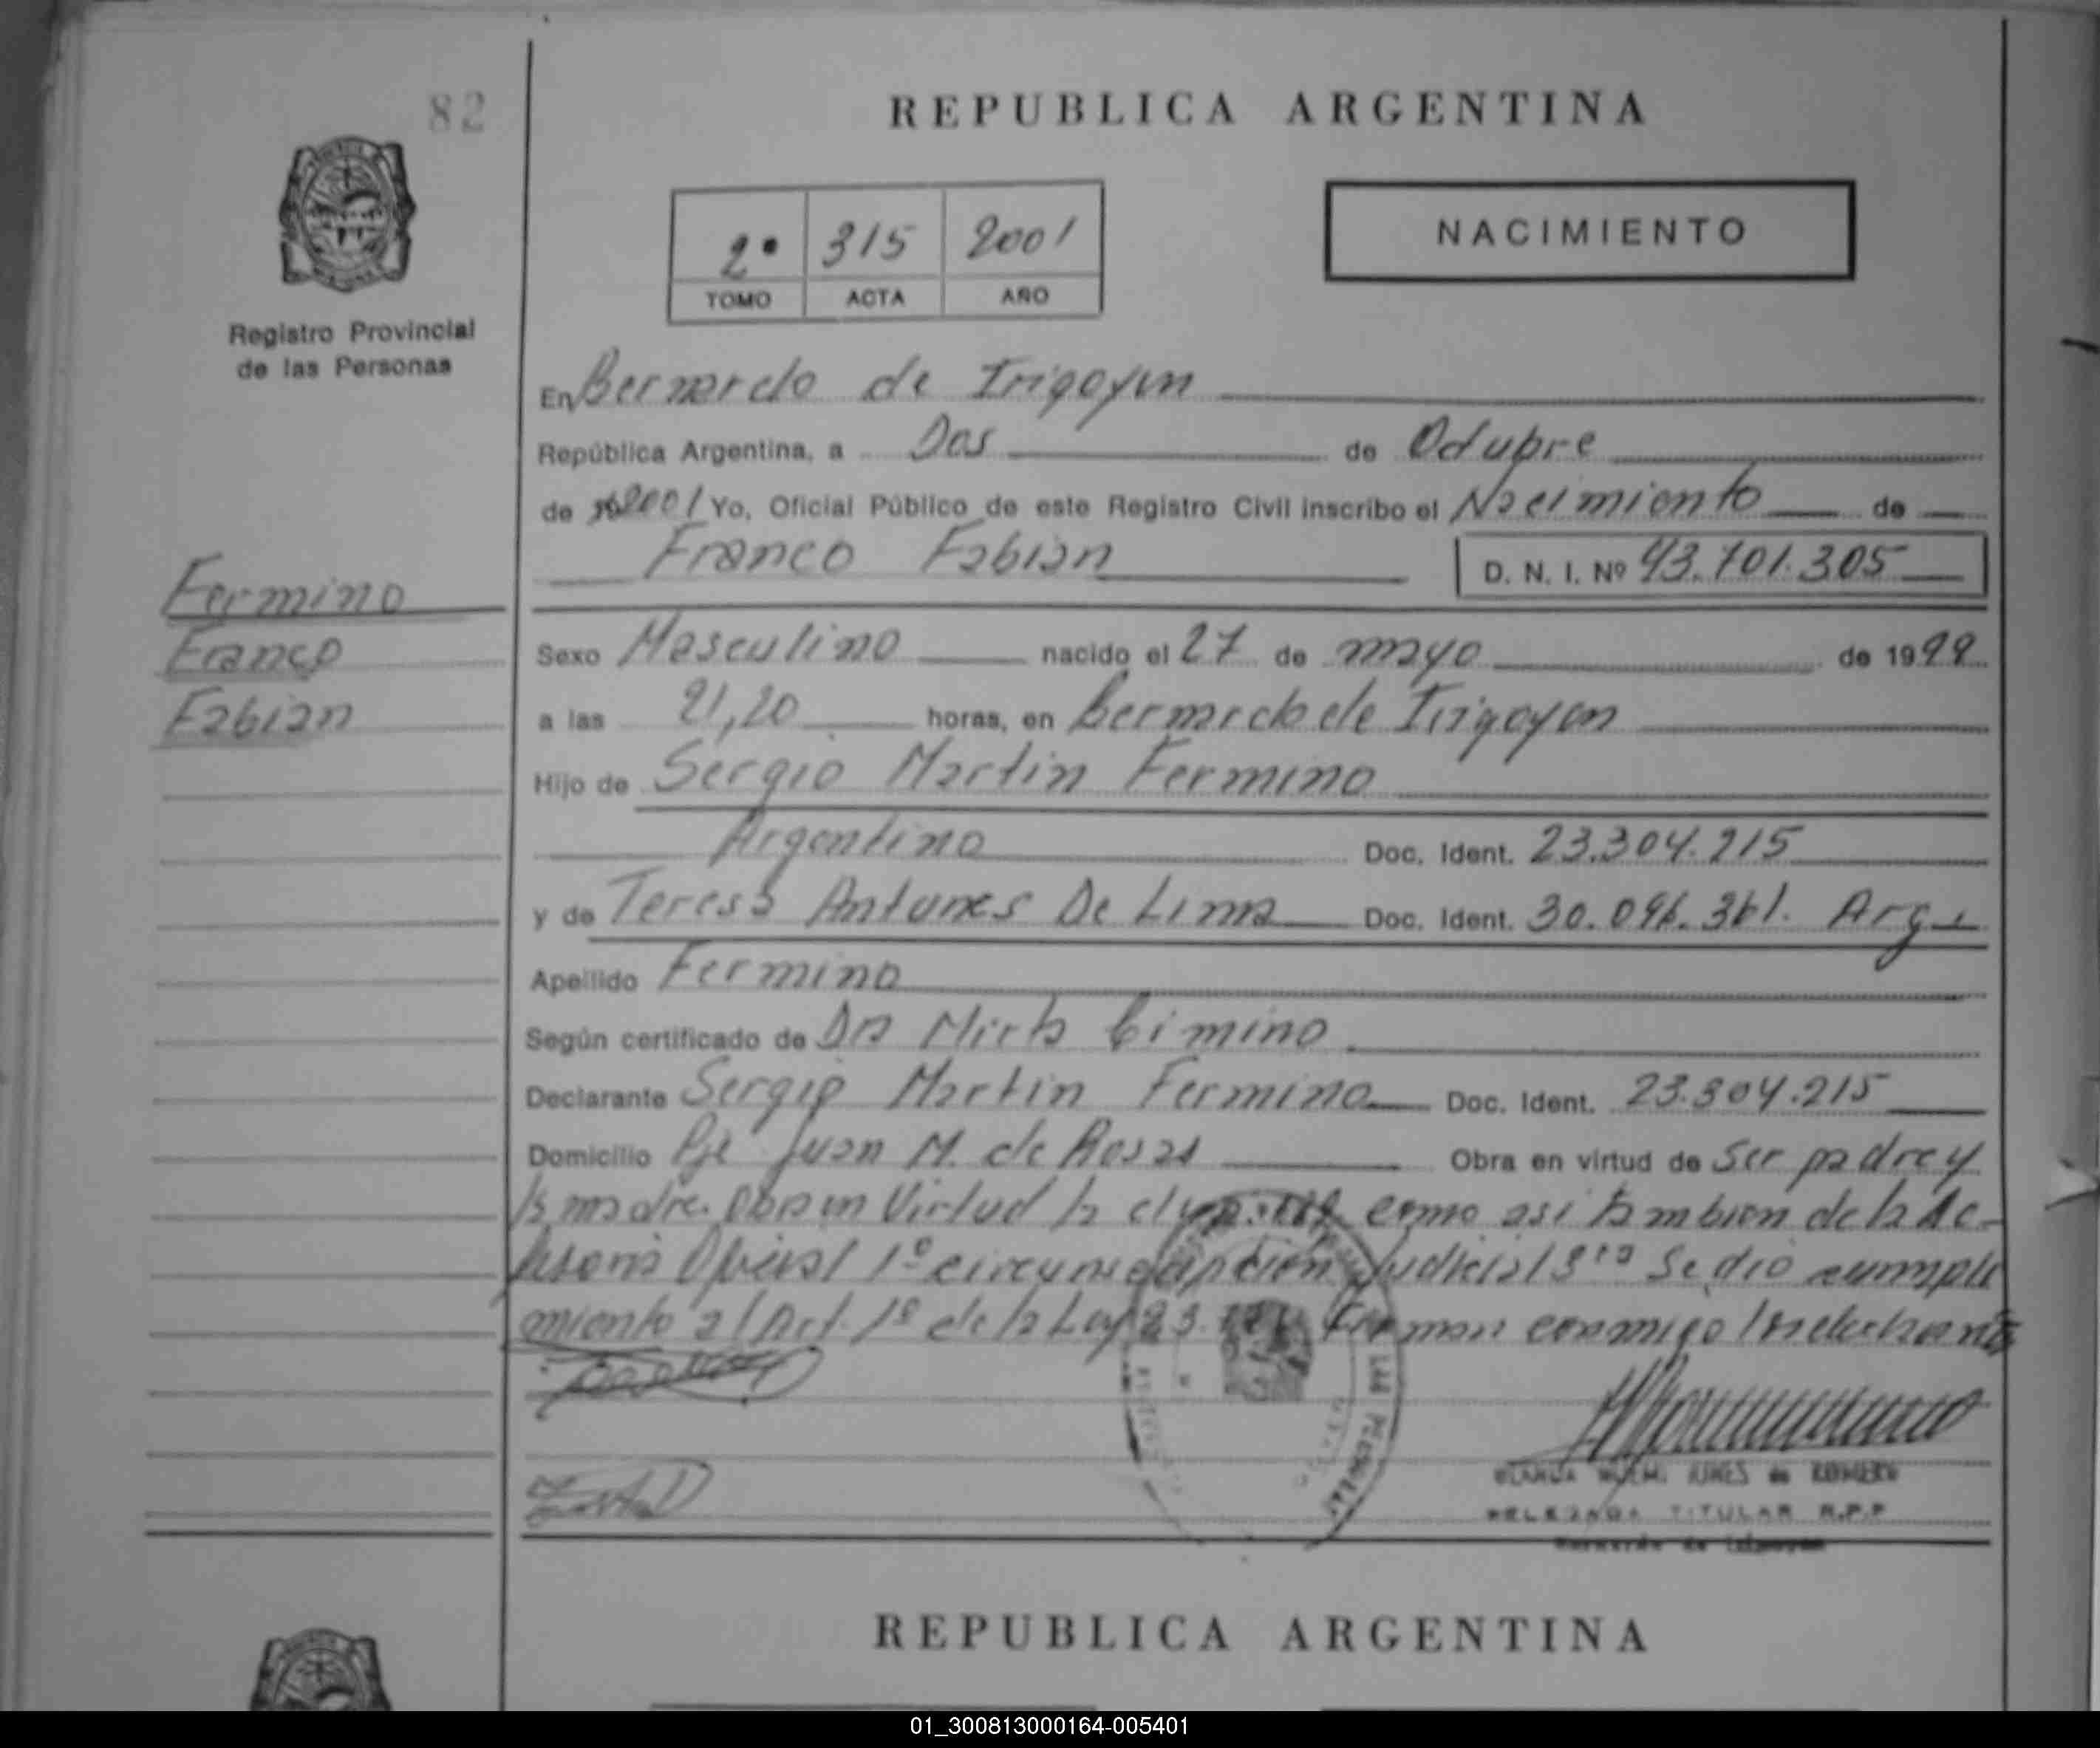 82
REPUBLICA ARGENTINA
2º 315 2001
TOMO ACTA AÑO
NACIMIENTO
Registro Provincial
de las Personas
En Bernardo de Irigoyen
República Argentina, a Dos de Octubre
de 2001 Yo, Oficial Público de este Registro Civil inscribo el Nacimiento de
Franco Fabian D. N. I. Nº 43.701.305
Fermino
Franco
Fabian
Sexo Masculino nacido el 27 de mayo de 1999
a las 21,20 horas, en Bernardo de Irigoyen
Hijo de Sergio Martin Fermino
Argentino Doc. Ident. 23.304.215
y de Teresa Antunes De Lima Doc. Ident. 30.096.361. Arg
Apellido Fermino
Según certificado de Dra Mirta Cimino
Declarante Sergio Martin Fermino Doc. Ident. 23.304.215
Domicilio Pje Juan M. de Rosas Obra en virtud de Ser padre y
la madre. Obra en Virtud como asi tambien de la
Oficial 1º circunscripcion Judicial Se dio cumpli
miento al Art. 1º de la Ley 23. Firman conmigo
de ROMERO
DELEGADA TITULAR R.P.P
Bernardo de Irigoyen
REPUBLICA ARGENTINA
01_300813000164-005401